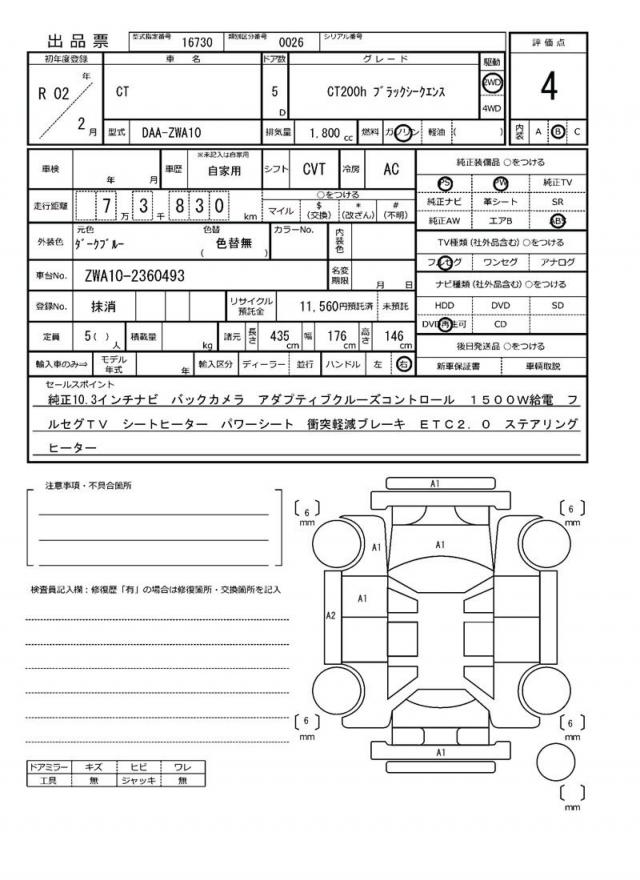 出品票 型式指定番号 16730 類別区分番号 0026 シリアル番号
初年度登録 車名 ドア数 グレード 駆動 評価点
R 02 年 2月 CT 5 D CT200h ブラックシークエンス 2WD 4WD 4
型式 DAA-ZWA10 排気量 1,800 cc 燃料 ガソリン 軽油 ( ) 内装 A B C
車検 年 月 車歴 ※未記入は自家用 自家用 シフト CVT 冷房 AC
走行距離 7万3千830 km ○をつける マイル $(交換) *(改ざん) #(不明)
外装色 元色 ダークブルー 色替 ( 色替無 ) カラーNo. 内装色
車台No. ZWA10-2360493 名変期限 月 日
登録No. 抹消 リサイクル預託金 11,560円預託済 未預託
定員 5( )人 積載量 kg 諸元 長さ 435cm 幅 176cm 高さ 146cm
輸入車のみ⇒ モデル年式 年 輸入区分 ディーラー 並行 ハンドル 左 右
純正装備品 ○をつける
PS PW 純正TV
純正ナビ 革シート SR
純正AW エアB ABS
TV種類(社外品含む) ○をつける
フルセグ ワンセグ アナログ
ナビ種類(社外品含む) ○をつける
HDD DVD SD
DVD再生可 CD
後日発送品 ○をつける
新車保証書 車輌取説
セールスポイント
純正10.3インチナビ バックカメラ アダプティブクルーズコントロール 1500W給電 フ
ルセグTV シートヒーター パワーシート 衝突軽減ブレーキ ETC2.0 ステアリング
ヒーター
注意事項・不具合箇所
検査員記入欄：修復歴「有」の場合は修復箇所・交換箇所を記入
ドアミラー キズ ヒビ ワレ
工具 無 ジャッキ 無
A1
[ 6 ] mm [ 6 ] mm
A1 A1
A1
A2
[ 6 ] mm [ 6 ] mm
A1
[ ] mm